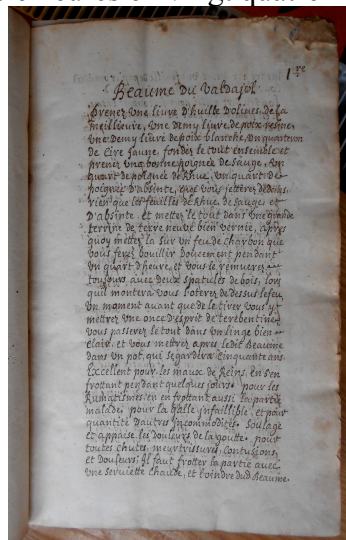 1re
Beaume du Valdajol
Prenez une livre d'huille d'olives, de la
meillieure, une demy livre de poix resine
une demy livre de poix blanche, un quarteron
de Cire Jaune, fondez le tout ensemble et
prenez une bonne poignée de sauge, un
quart de poignée de Rhue, un quart de
poignée d'absinte, que vous jetterez dedans
rien que les feuilles de Rhue, de sauge, et
d'absinte et mettez le tout dans une grande
terrine de terre neuve bien vernie, apres
quoy mettez la sur un feu de charbon que
vous ferez bouillir doucement pendant
un quart d'heure, et vous le remuerez
toujours avec deux spatules de bois, lors
quil montera vous l'oterez de dessus le feu,
un moment avant que de le tirer vous y
mettrez une once d'esprit de terebentine
vous passerez le tout dans un linge bien
clair, et vous mettrez apres ledit Beaume
dans un pot, qui se gardira Cinquante ans.
Excellent pour les maux de Reins, en s'en
frottant pendant quelques jours. pour les
Rumatismes en en frottant aussi la partie
malade, pour la galle infaillible, et pour
quantité d'autres Incommodités. soulage
et appaise les douleurs de la goutte. pour
toutes Chutes, meurtrissures, Contusions,
et Douleurs; Il faut frotter la partie avec
une serviette Chaude, et l'oindre dud Beaume.